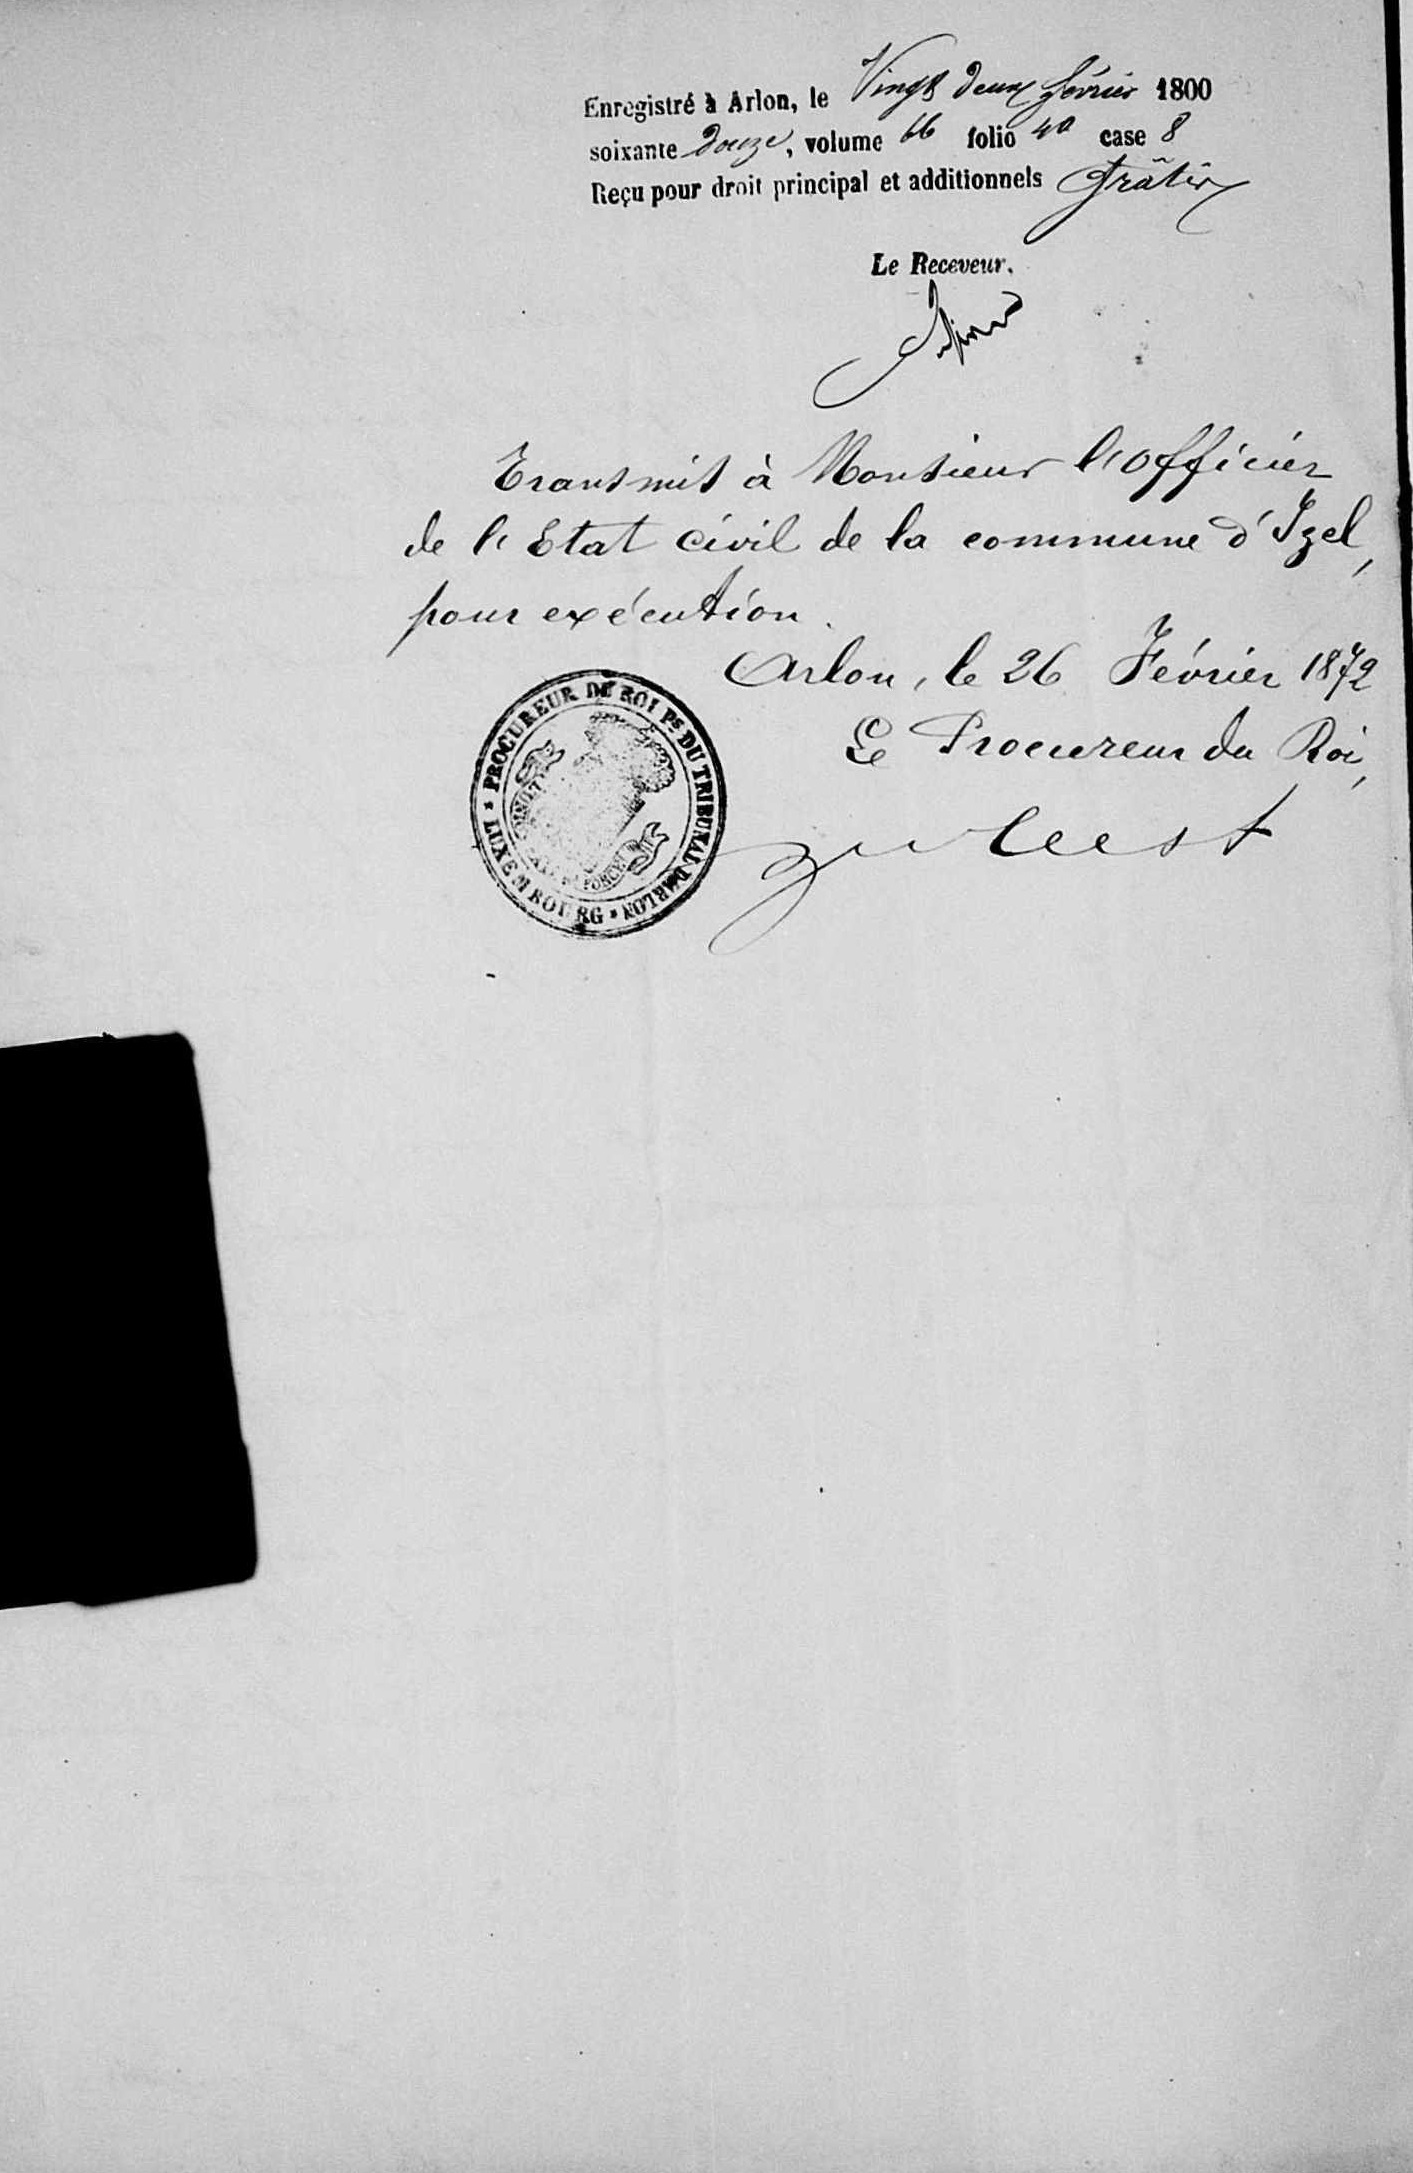 Enregistré à Arlon, le Vingt deux février 1800
soixante douze, volume 66 folio 40 case 8
Reçu pour droit principal et additionnels Gratis
Le Receveur.
Transmis à Monsieur l'officier
de l'Etat civil de la commune d'Izel,
pour exécution.
Arlon, le 26 Février 1872
Le Procureur du Roi,
PROCUREUR DU ROI Ps DU TRIBUNAL D'ARLON
LUXEMBOURG